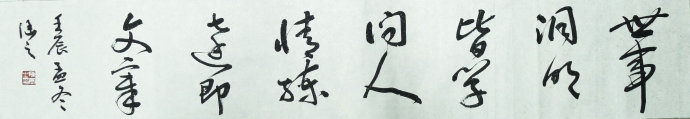 世事
洞明
皆学
问人
情练
達即
文章
壬辰孟冬